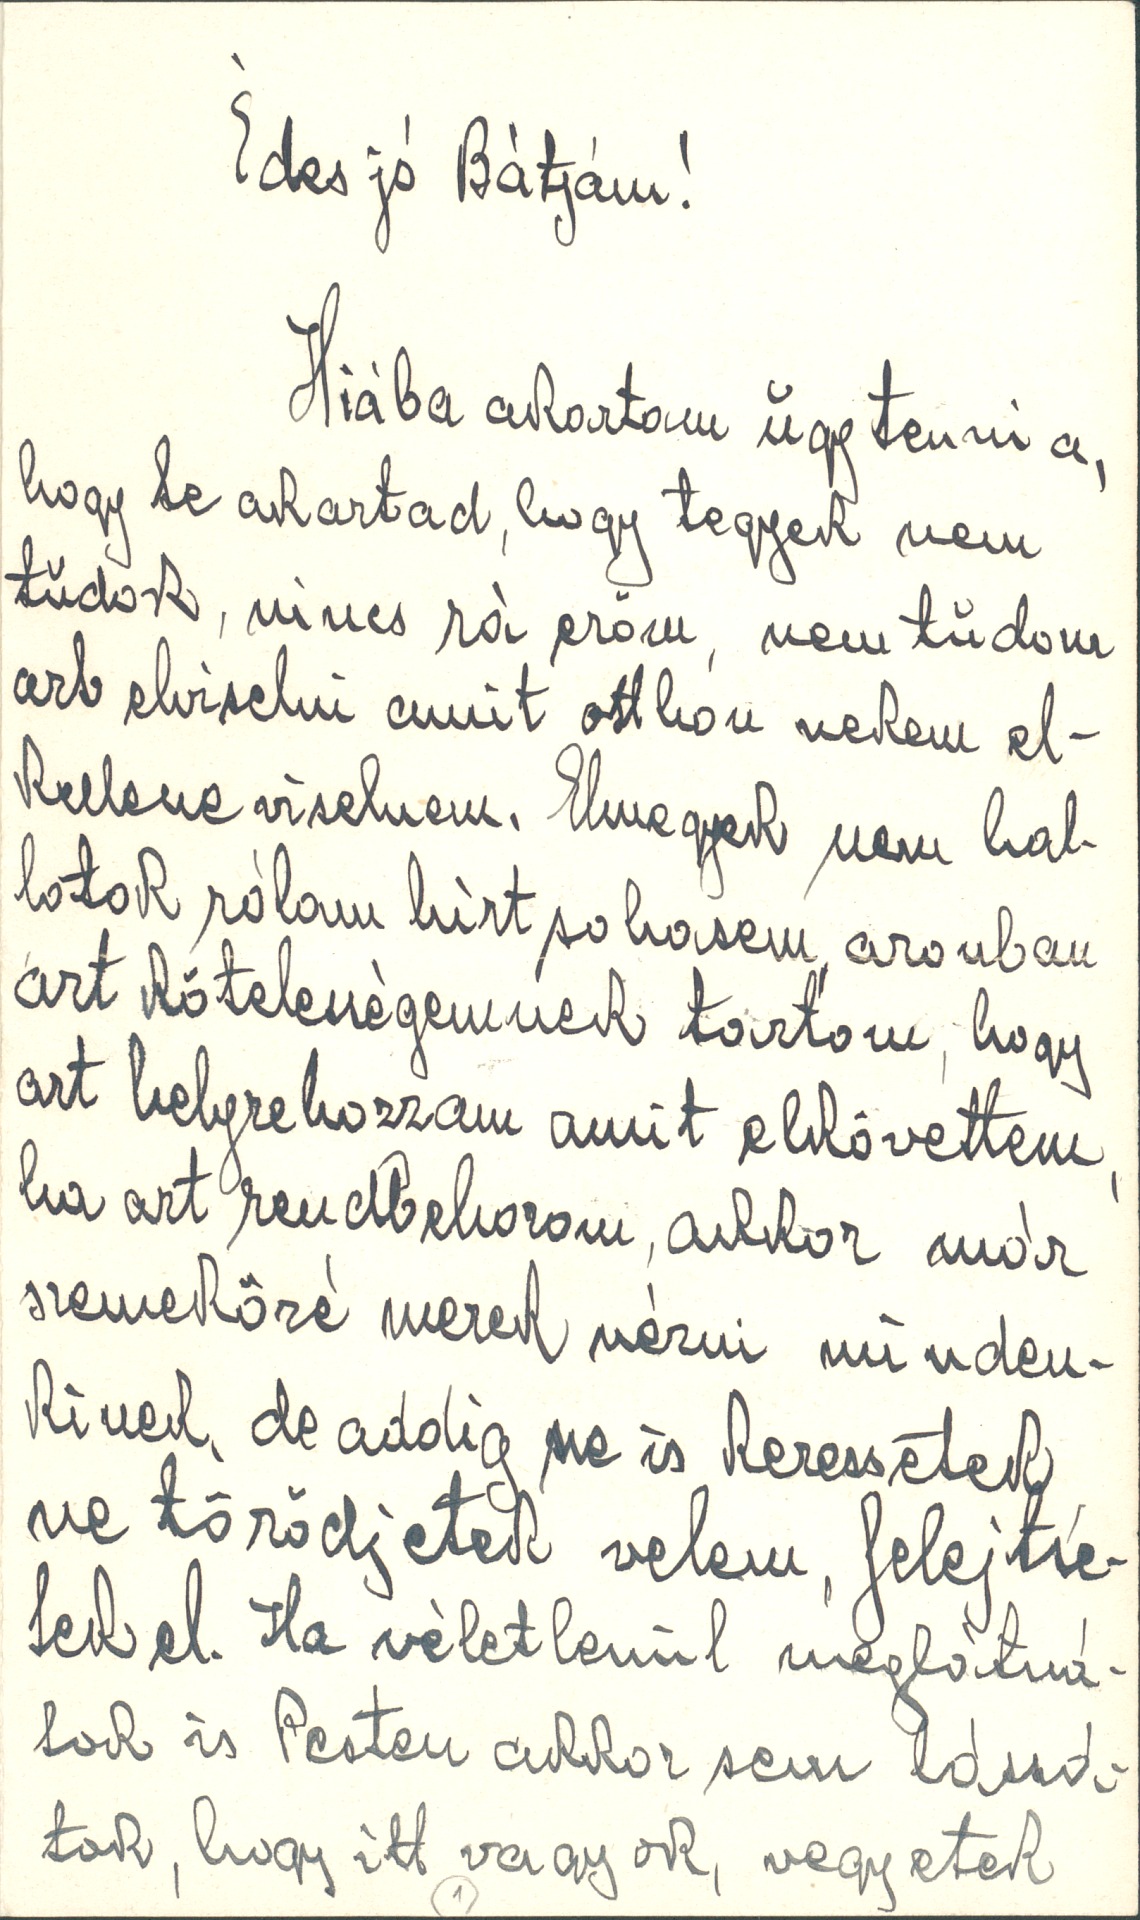 Édes jó Bátjám!
Hiába akartam úgy tenni a,
hogy te akartad, hogy tegyek nem
tudok, nincs rá erőm, nem tudom
azt elviselni amit otthon nekem el-
kellene viselnem. Elmegyek nem hal-
lotok rólam hírt sohasem, azonban
azt kötelességemnek tartom, hogy
azt helyrehozzam amit elkövettem,
ha azt rendbehozom, akkor már
szemeközé merek nézni minden-
kinek, de addig ne is keressetek
ne törődjetek velem, felejtse-
tek el. Ha véletlenül meglátná-
tok is Pesten akkor sem lássá-
tok, hogy itt vagyok, vegyetek
1